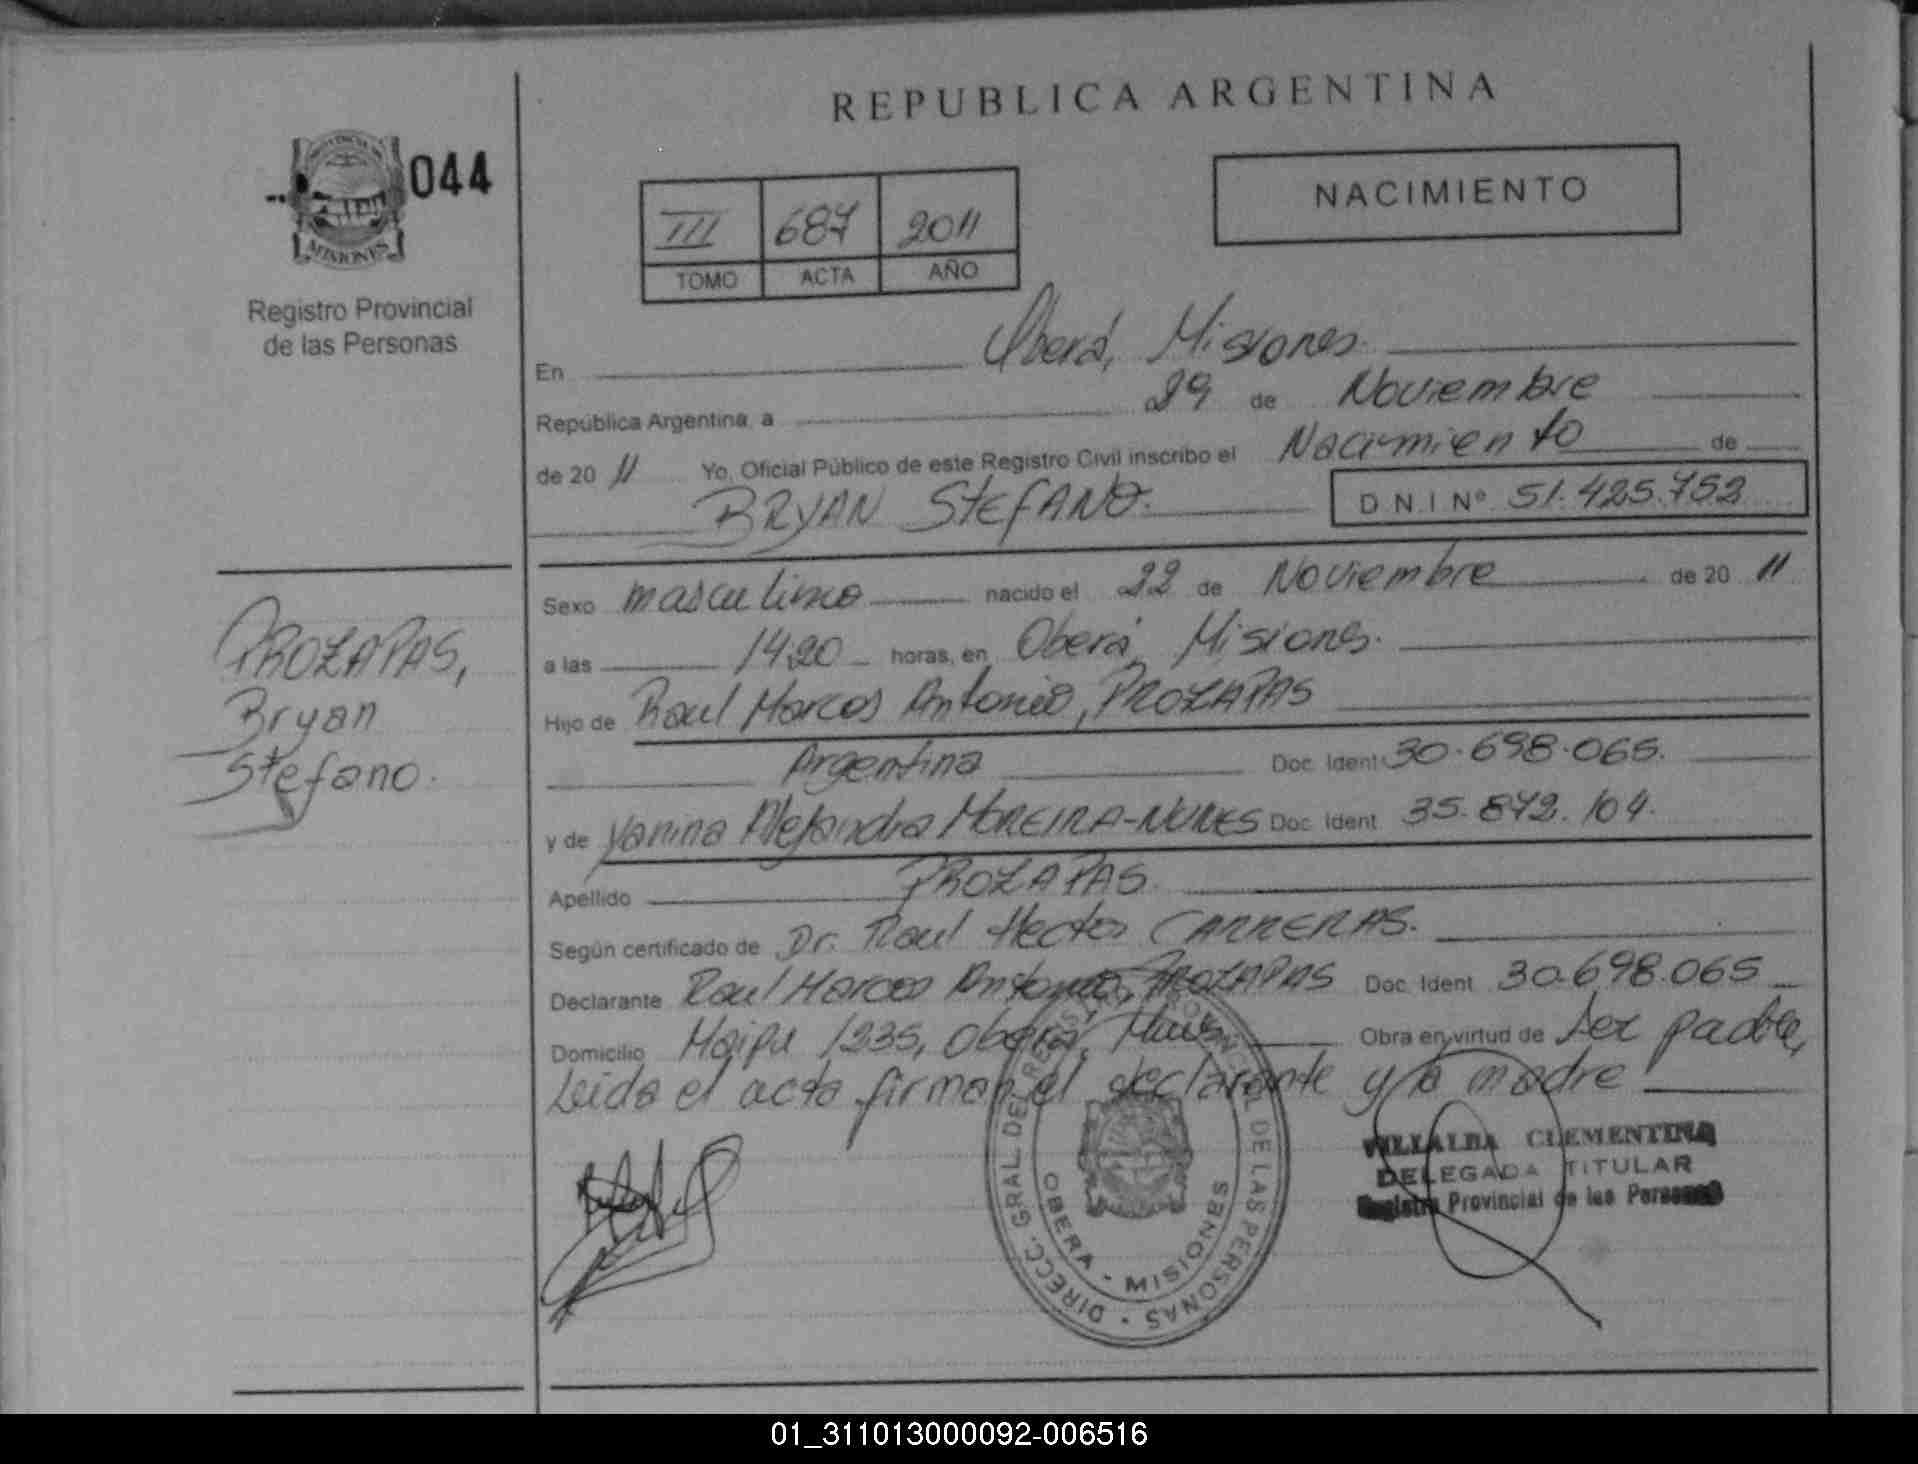 REPUBLICA ARGENTINA
PROVINCIA DE
MISIONES
044
Registro Provincial
de las Personas
III 687 2011
TOMO ACTA AÑO
NACIMIENTO
En Oberá, Misiones.
República Argentina, a 29 de Noviembre
de 20 11 Yo, Oficial Público de este Registro Civil inscribo el Nacimiento de
BRYAN STEFANO. D.N.I Nº 51.425.752
Sexo masculino nacido el 22 de Noviembre de 20 11
a las 14,20 horas, en Oberá, Misiones.
Hijo de Raul Marcos Antonio, PROZAPAS
Argentina Doc. Ident. 30.698.065.
y de Yanina Alejandra MOREIRA-NUNES Doc. Ident. 35.872.104.
Apellido PROZAPAS.
Según certificado de Dr. Raul Hector CARRERAS.
Declarante Raul Marcos Antonio, PROZAPAS Doc. Ident. 30.698.065
Domicilio Maipu 1235, Oberá, Obra en virtud de ser padre,
Leida el acta firman el declarante y la madre
PROZAPAS,
Bryan
Stefano.
DIRECC. GRAL. DEL REGISTRO PROVINCIAL DE LAS PERSONAS
OBERA - MISIONES
VILLALBA CLEMENTINA
DELEGADA TITULAR
Registro Provincial de las Personas
01_311013000092-006516